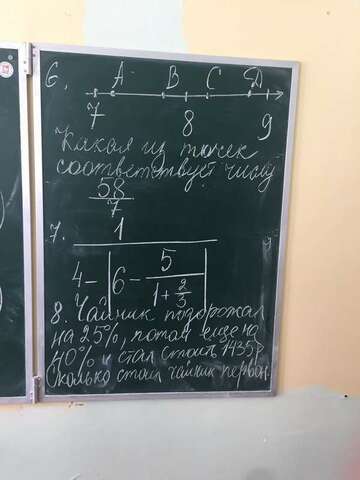 6. A B C D
7 8 9
Какая из точек
соответствует числу
58/7
7. 1/(4-|6-5/(1+2/3)|)
8. Чайник подорожал
на 25%, потом еще на
40% и стал стоить 1435р
Сколько стоил чайник первон.